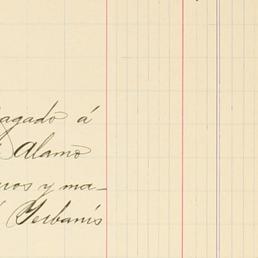 agado á
Alamo
ros y ma-
Gerbanis